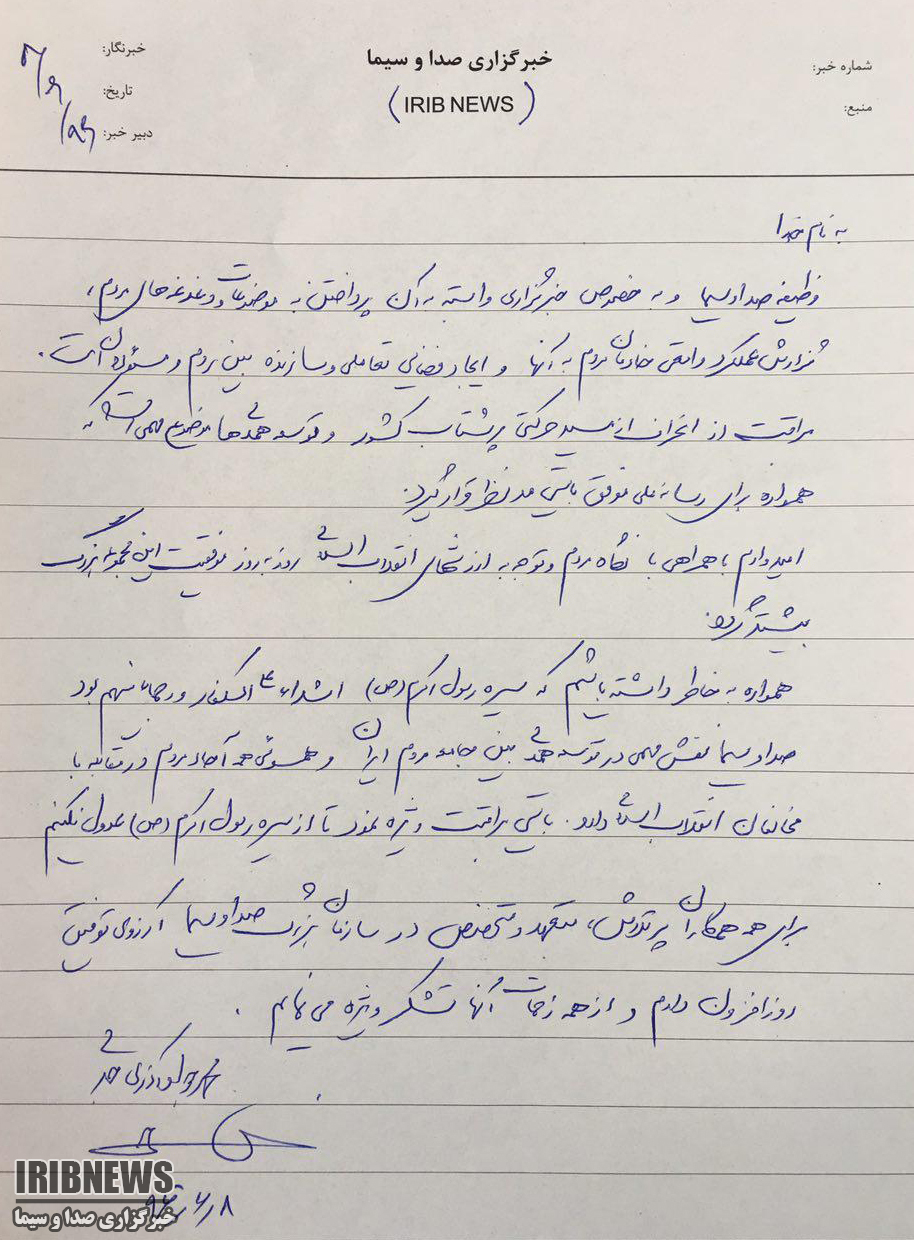 خبرگزاری صدا و سیما
(IRIB NEWS)
شماره خبر:
منبع:
خبرنگار:
تاریخ:
دبیر خبر:
به نام خدا
وظیفه صدا و سیما و به خصوص خبرگزاری وابسته به آن پرداختن به موضوعات و دغدغه های مردم،
گزارش عملکرد واقعی خادمان مردم به آنها و ایجاد فضایی تعاملی و سازنده بین مردم و مسئولان است.
مراقبت از انحراف از مسیر حرکتی پرشتاب کشور و توسعه همدلی ها موضوع مهمی است که
همواره برای رسانه ملی موفق بایستی مد نظر قرار گیرد.
امیدوارم با همراهی با نگاه مردم و توجه به ارزشهای انقلاب اسلامی روز به روز موفقیت این مجموعه بزرگ
بیشتر گردد.
همواره به خاطر داشته باشیم که سیره رسول اکرم (ص) اشداء علی الکفار و رحماء بینهم بود
صدا و سیما نقش مهمی در توسعه همدلی بین جامعه مردم ایران و همسوئی همه آحاد مردم در مقابله با
مخالفان انقلاب اسلامی دارد. بایستی مراقبت ویژه نمود تا از سیره رسول اکرم (ص) عدول نکنیم
برای همه همکاران پرتلاش، متعهد و متخصص در سازمان بزرگ صدا و سیما آرزوی توفیق
روزافزون دارم و از همه زحمات آنها تشکر ویژه می نمایم.
محمدجواد آذری جهرمی
۸ر۶ر۹۶
IRIBNEWS
خبرگزاری صدا و سیما